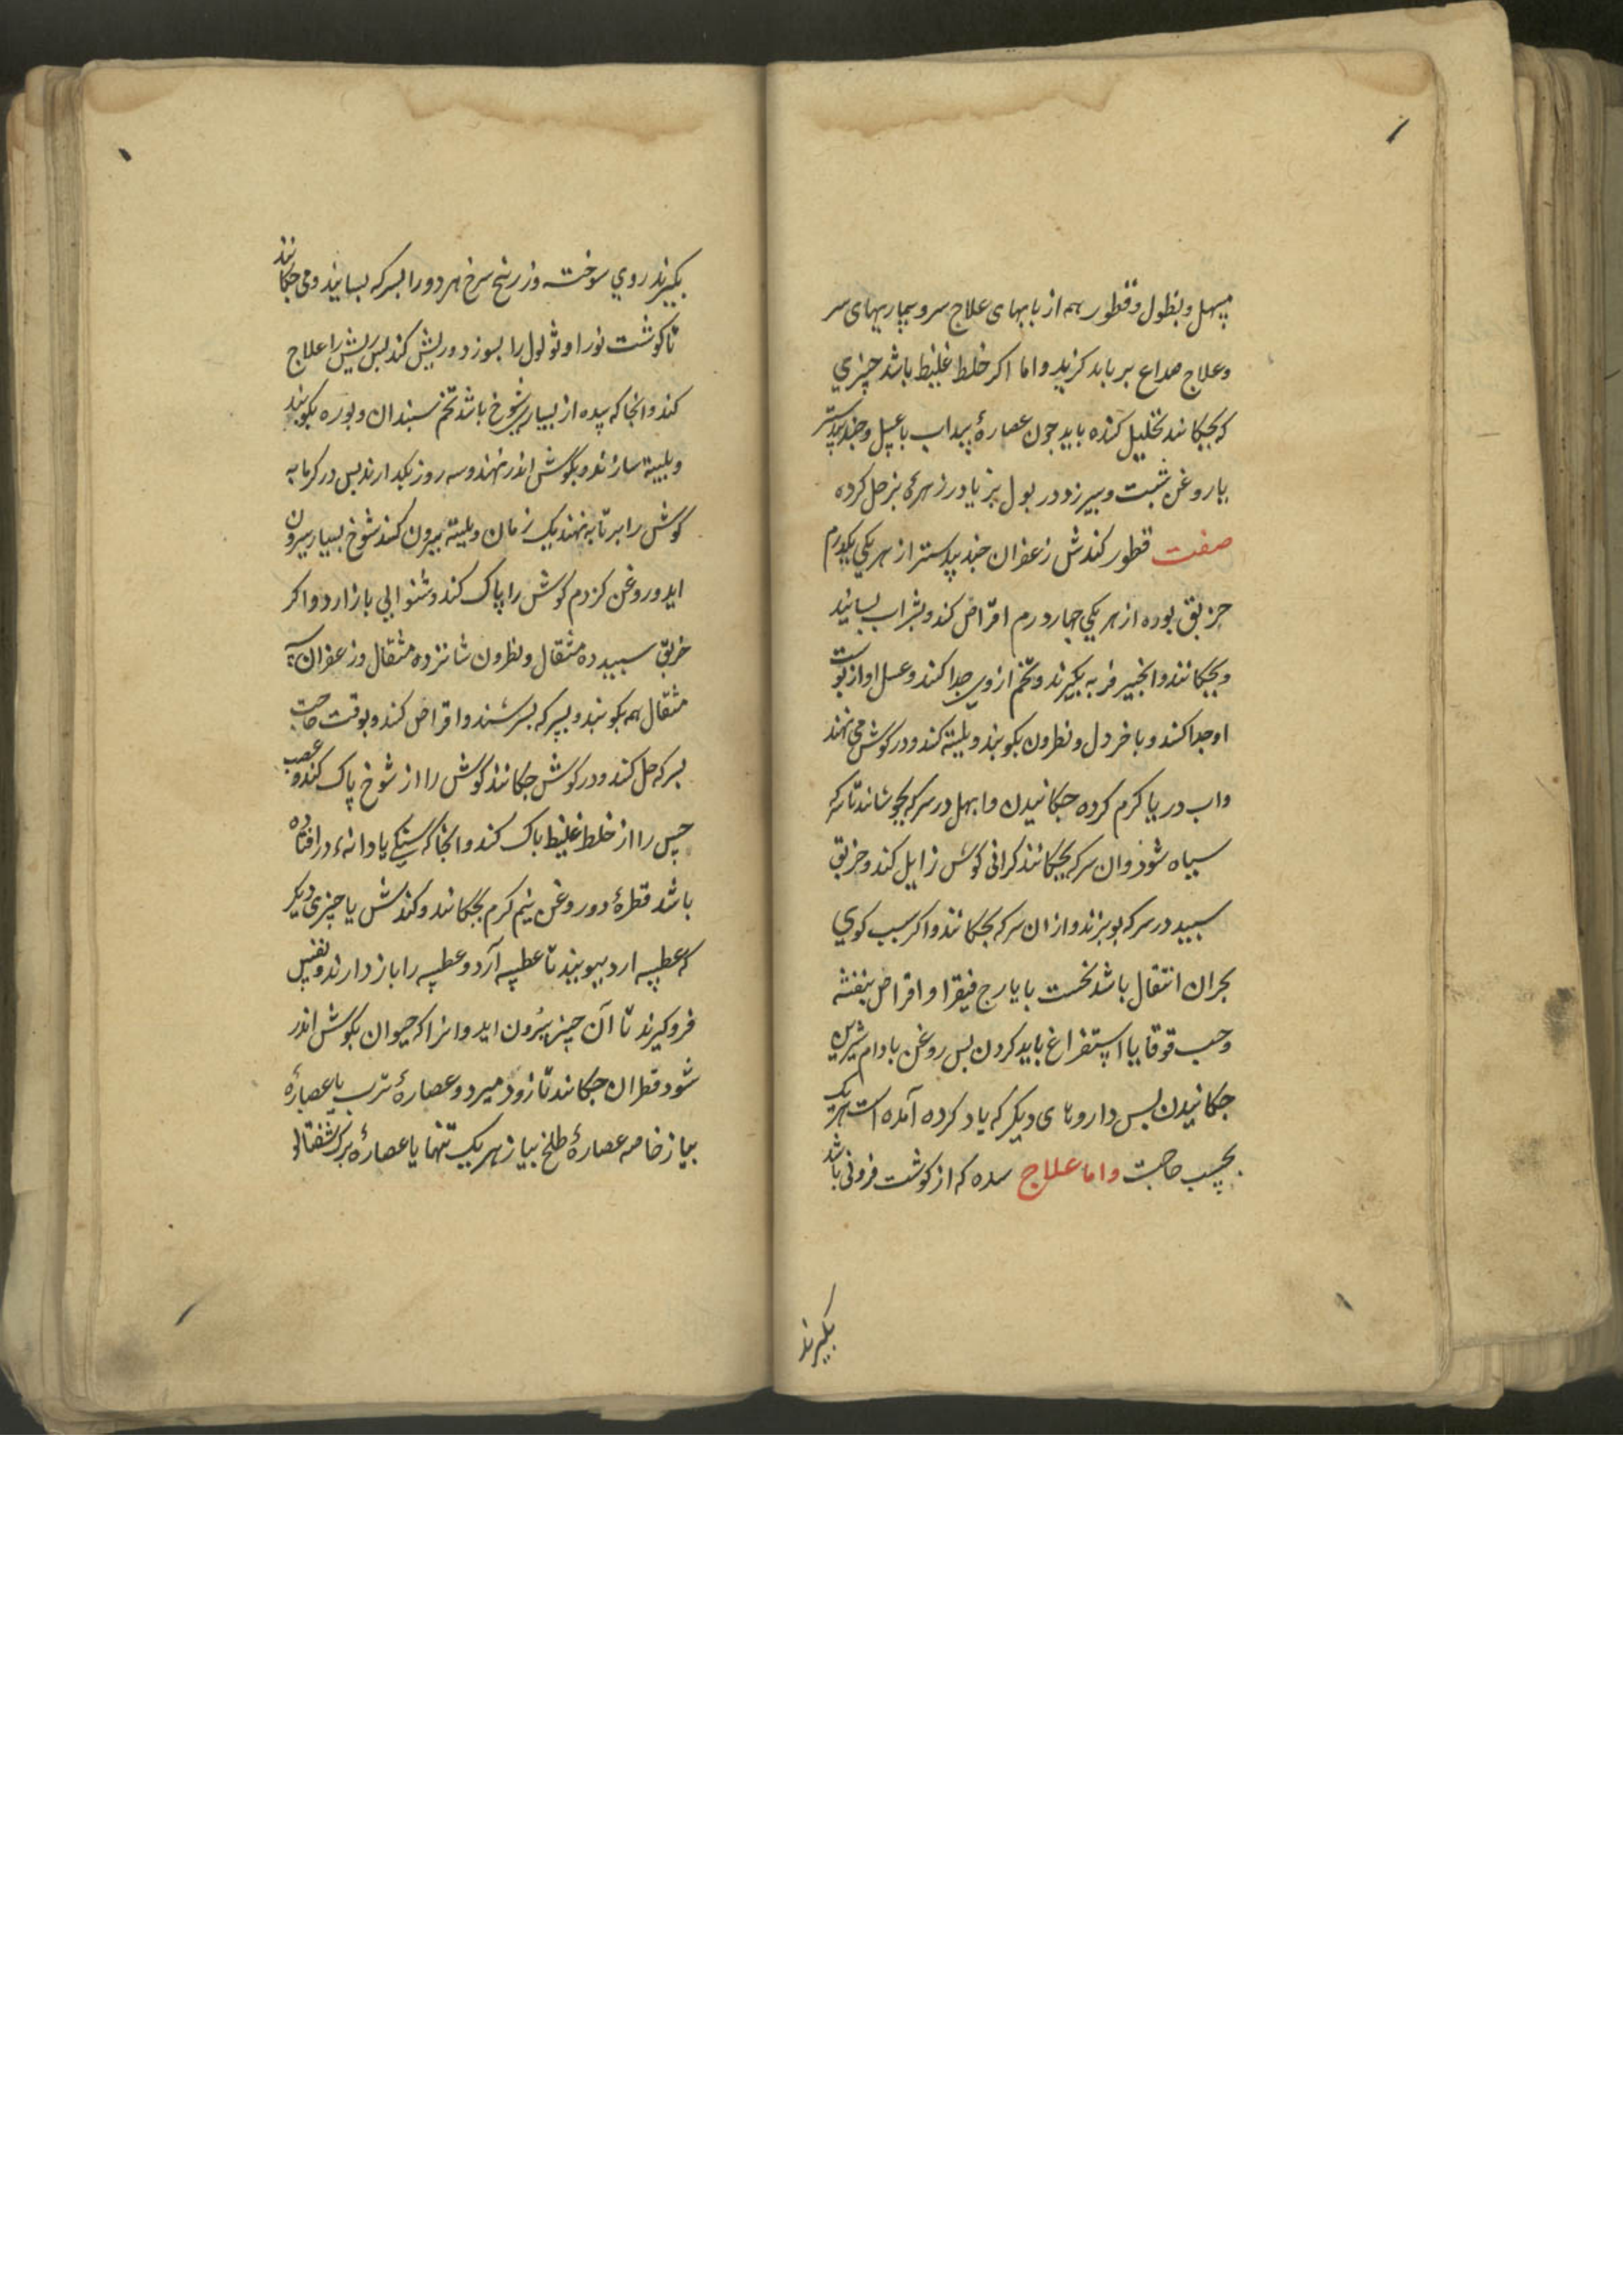 مسهل و نطول و قطور همه از بابهای علاج سر و بیماریهای سر
و علاج صداع بر باید کزید و اما اکر خلط غلیظ باشد چیزي
که بچکانند تحلیل کننده باید جون عصارهٔ سداب با عسل و جندبیدستر
یا روغن شبت و بیرزد در بول بز یا در زهرهٔ بز حل کرده
صفت قطور کندش زعفران جندبیدستر از هر یکي یکدرم
خربق بوره از هر یکي جهار درم اقراض کنند و بشراب بسایند
و بچکانند و انجیر فربه بکیرند و تخم از وی جدا کنند و عسل او از بوست
او جدا کنند و با خردل و نطرون بکوبند و بلیته کنند و در کوش می نهند
و اب دریا کرم کرده جکانیدن و ابهل در سرکه بجوشانند تا سرکه
سیاه شود و ان سرکه بچکانند کرانی کوش زایل کند و خربق
سبید در سرکه بوبزند و از ان سرکه بچکانند و اکر سبب کوي
بحران انتقال باشد نخست بایارج فیقرا و اقراص بنفشه
و حب قوقایا استفراغ باید کردن بس روغن بادام شیرین
جکانیدن بس داروهای دیکر که یاد کرده آمده است هر یک
بحسب حاجت و اما علاج سده که از کوشت فزونی باشد
بکیرند
بکیرند روي سوخته و زرنیخ سرخ هر دو را بسرکه بسایند و می جکانند
تا کوشت فزونرا و ثولول را بسوزد و ریش کند بس ریش را علاج
کنند و انجا که سده از بسیاری شوخ باشد تخم سبندان و بوره بکوبند
و بلیته سازند و بکوش اندر نهند و سه روز بکدارند بس در کرمابه
کوش را بر تابه نهند یک زمان و بلیته بیرون کنند شوخ بسیار بیرون
اید و روغن کزدم کوش را پاک کند و شنوایی باز ارد و اکر
خربق سبید ده مثقال و نطرون شانزده مثقال و زعفران سه
مثقال همه بکوبند و بسرکه بسرشند و اقراص کنند و بوقت حاجت
بسرکه حل کنند و در کوش جکانند کوش را از شوخ پاک کند و عصب
حس را از خلط غلیظ باک کند و انجا که سنکی یا دانهٔ در افتاده
باشد قطرهٔ دو روغن نیم کرم بچکانند و کندش یا چیزی دیکر
که عطسه ارد ببویند تا عطسه آرد و عطسه را باز دارند و نفس
فرو کیرند تا آن چیز بیرون اید و انرا که حیوان بکوش اندر
شود قطران جکانند تا زود میرد و عصارهٔ ترب یا عصارهٔ
بیاز خاصه عصارهٔ طلخ بیاز هر یک تنها یا عصارهٔ برک شفتالو